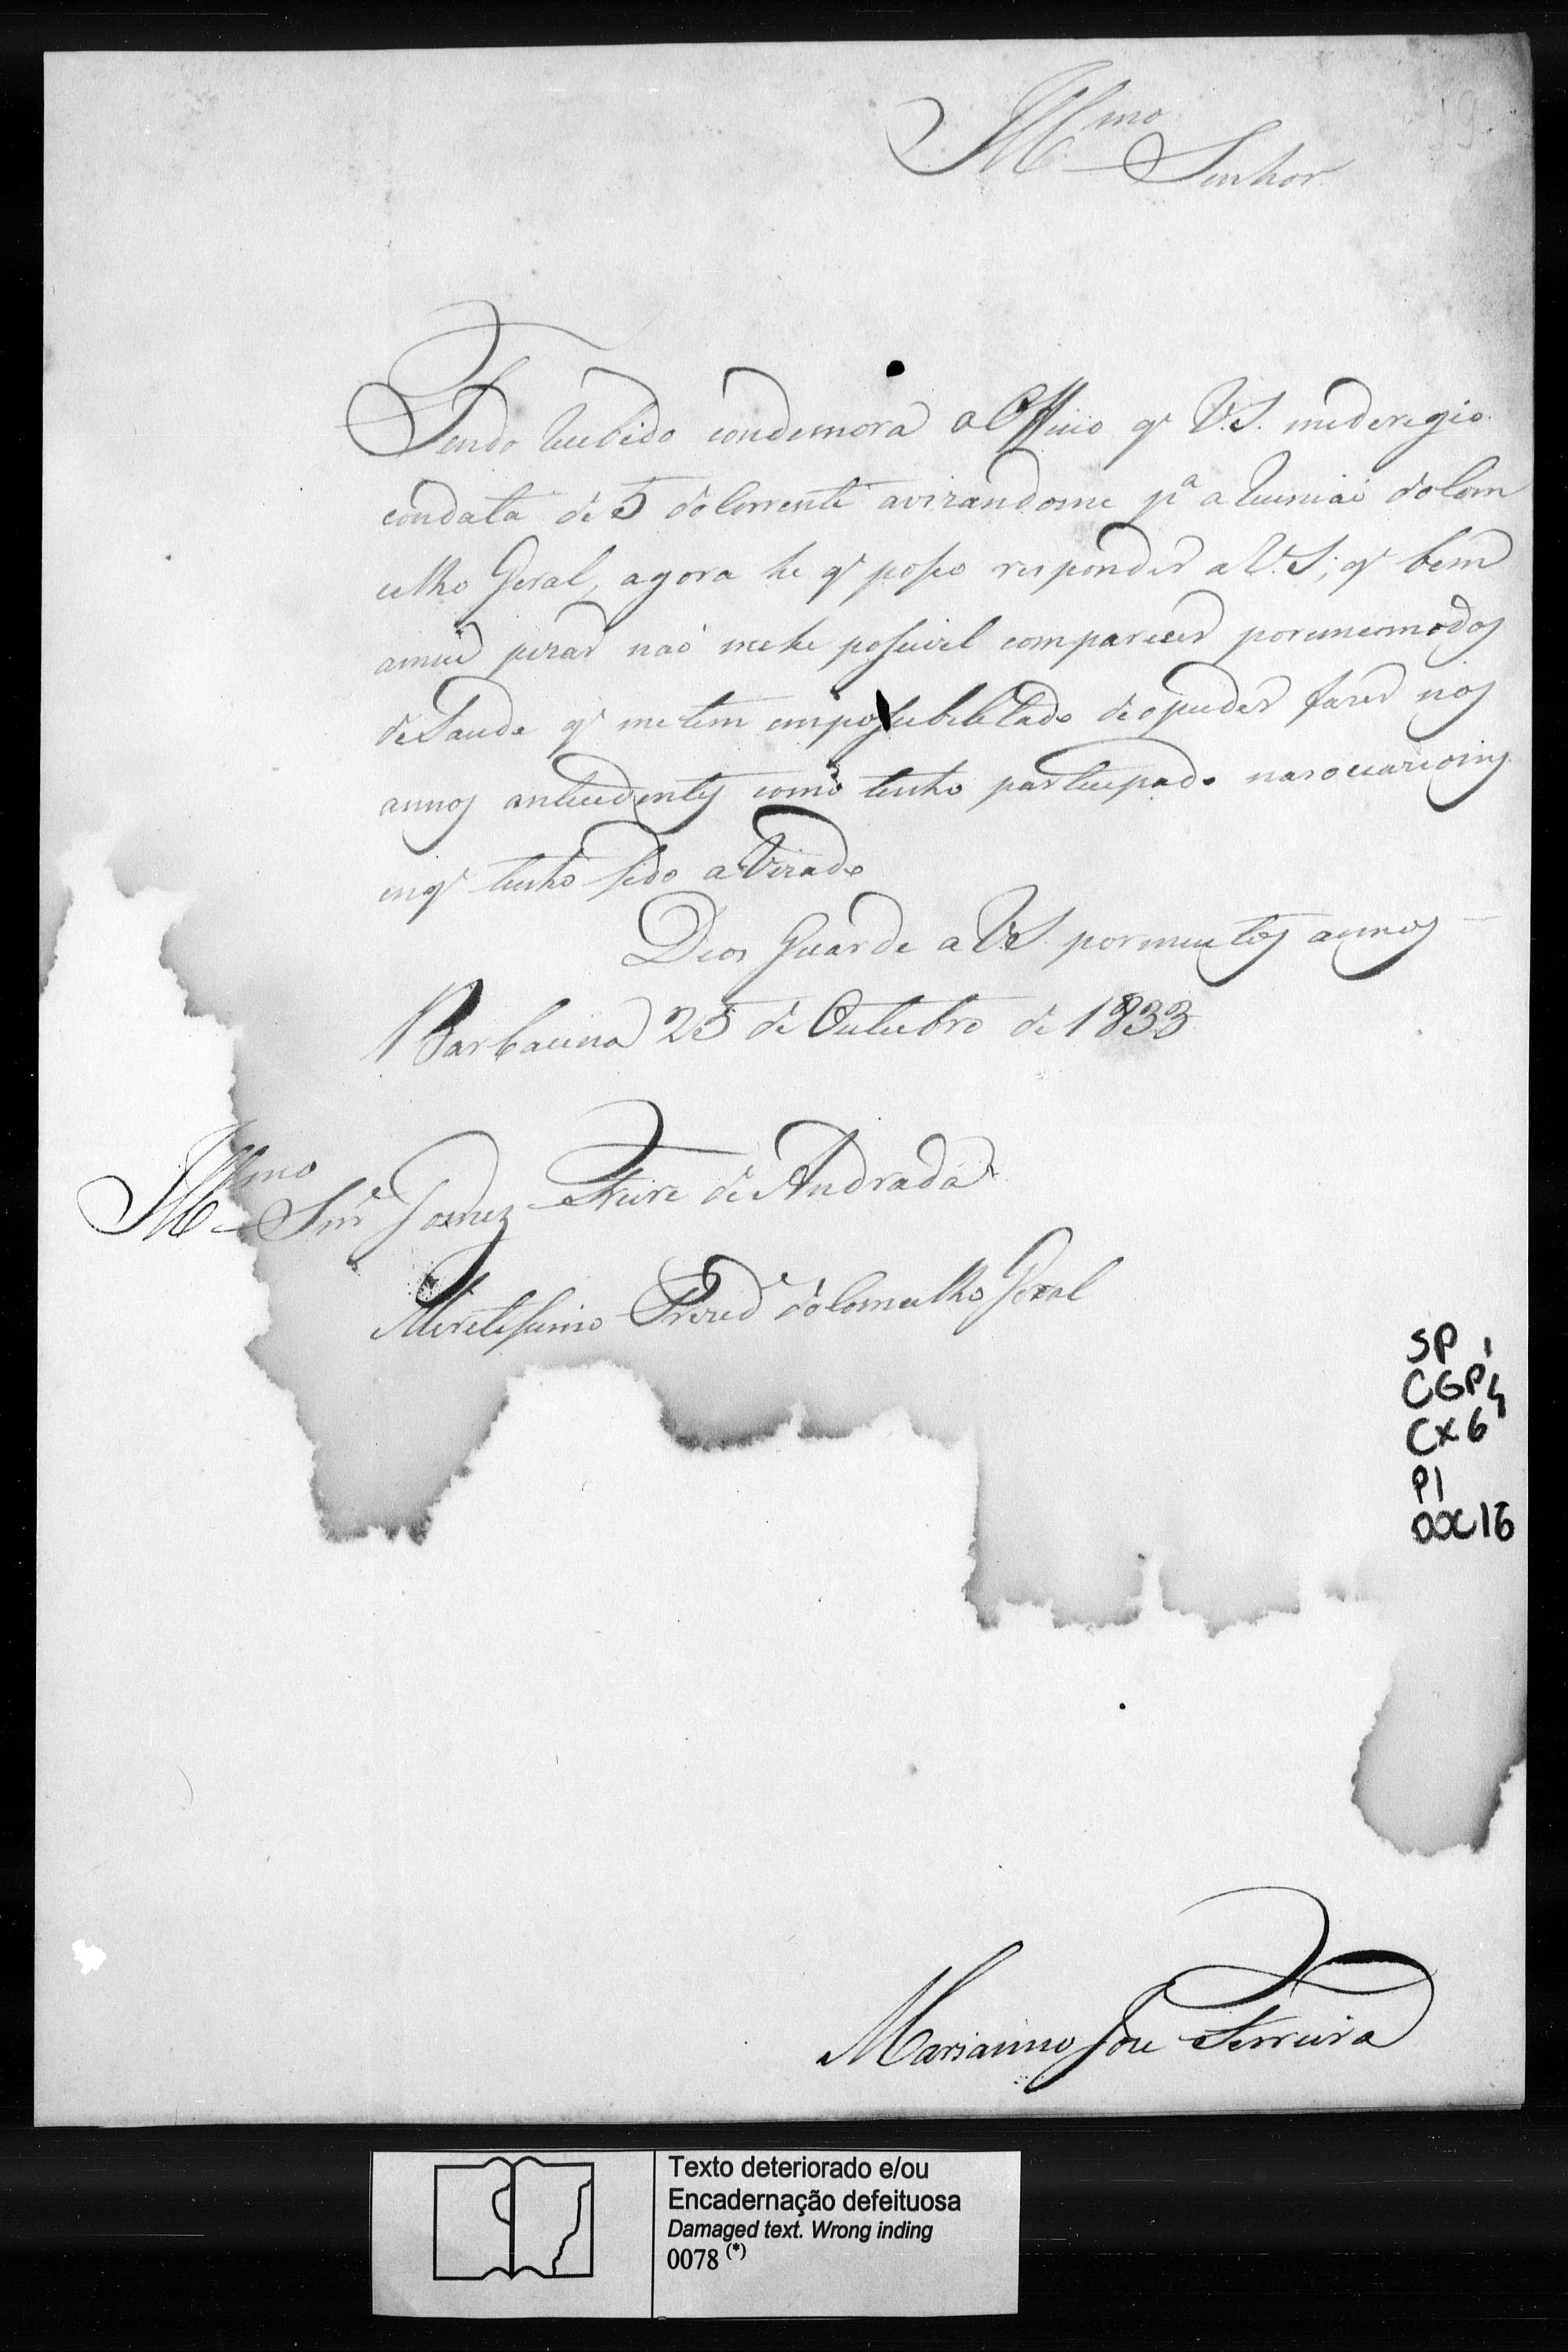 Illmo Senhor
19
Tendo recebido condemora o Officio q̃ V.S. mederegio
condata de 5 docorrente avizandome pa a reuniaõ doCon
celho Geral, agora he q̃ posso responder a V.S; q̃ bem
ameu pezar naõ mehe possivel comparecer porencomodos
deSaude q̃ metem empossubeletado deopuder fazer nos
annos antecedentes como tenho partecipado nasocazioins
enq̃ tenho sido aVizado
Deos Guarde a VS. pormuitos annos
Barbacena 25 de Outubro de 1833
Illmo Snr Gomez Freire de Andrada
Meretissimo Prezede doConcelho Geral
SP 1
CGP4
CX6
P1
DOC16
Marianno Joze Ferreira
Texto deteriorado e/ou
Encadernação defeituosa
Damaged text. Wrong inding
0078 (*)